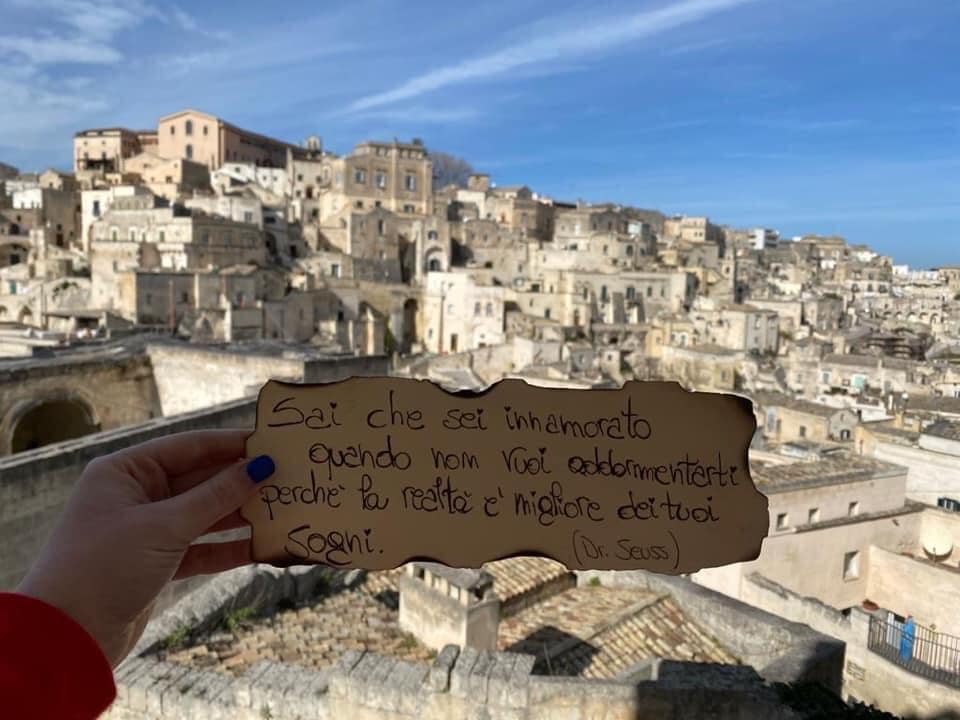 Sai che sei innamorato
quando non vuoi addormentarti
perchè la realtà è migliore dei tuoi
Sogni.
(Dr. Seuss)